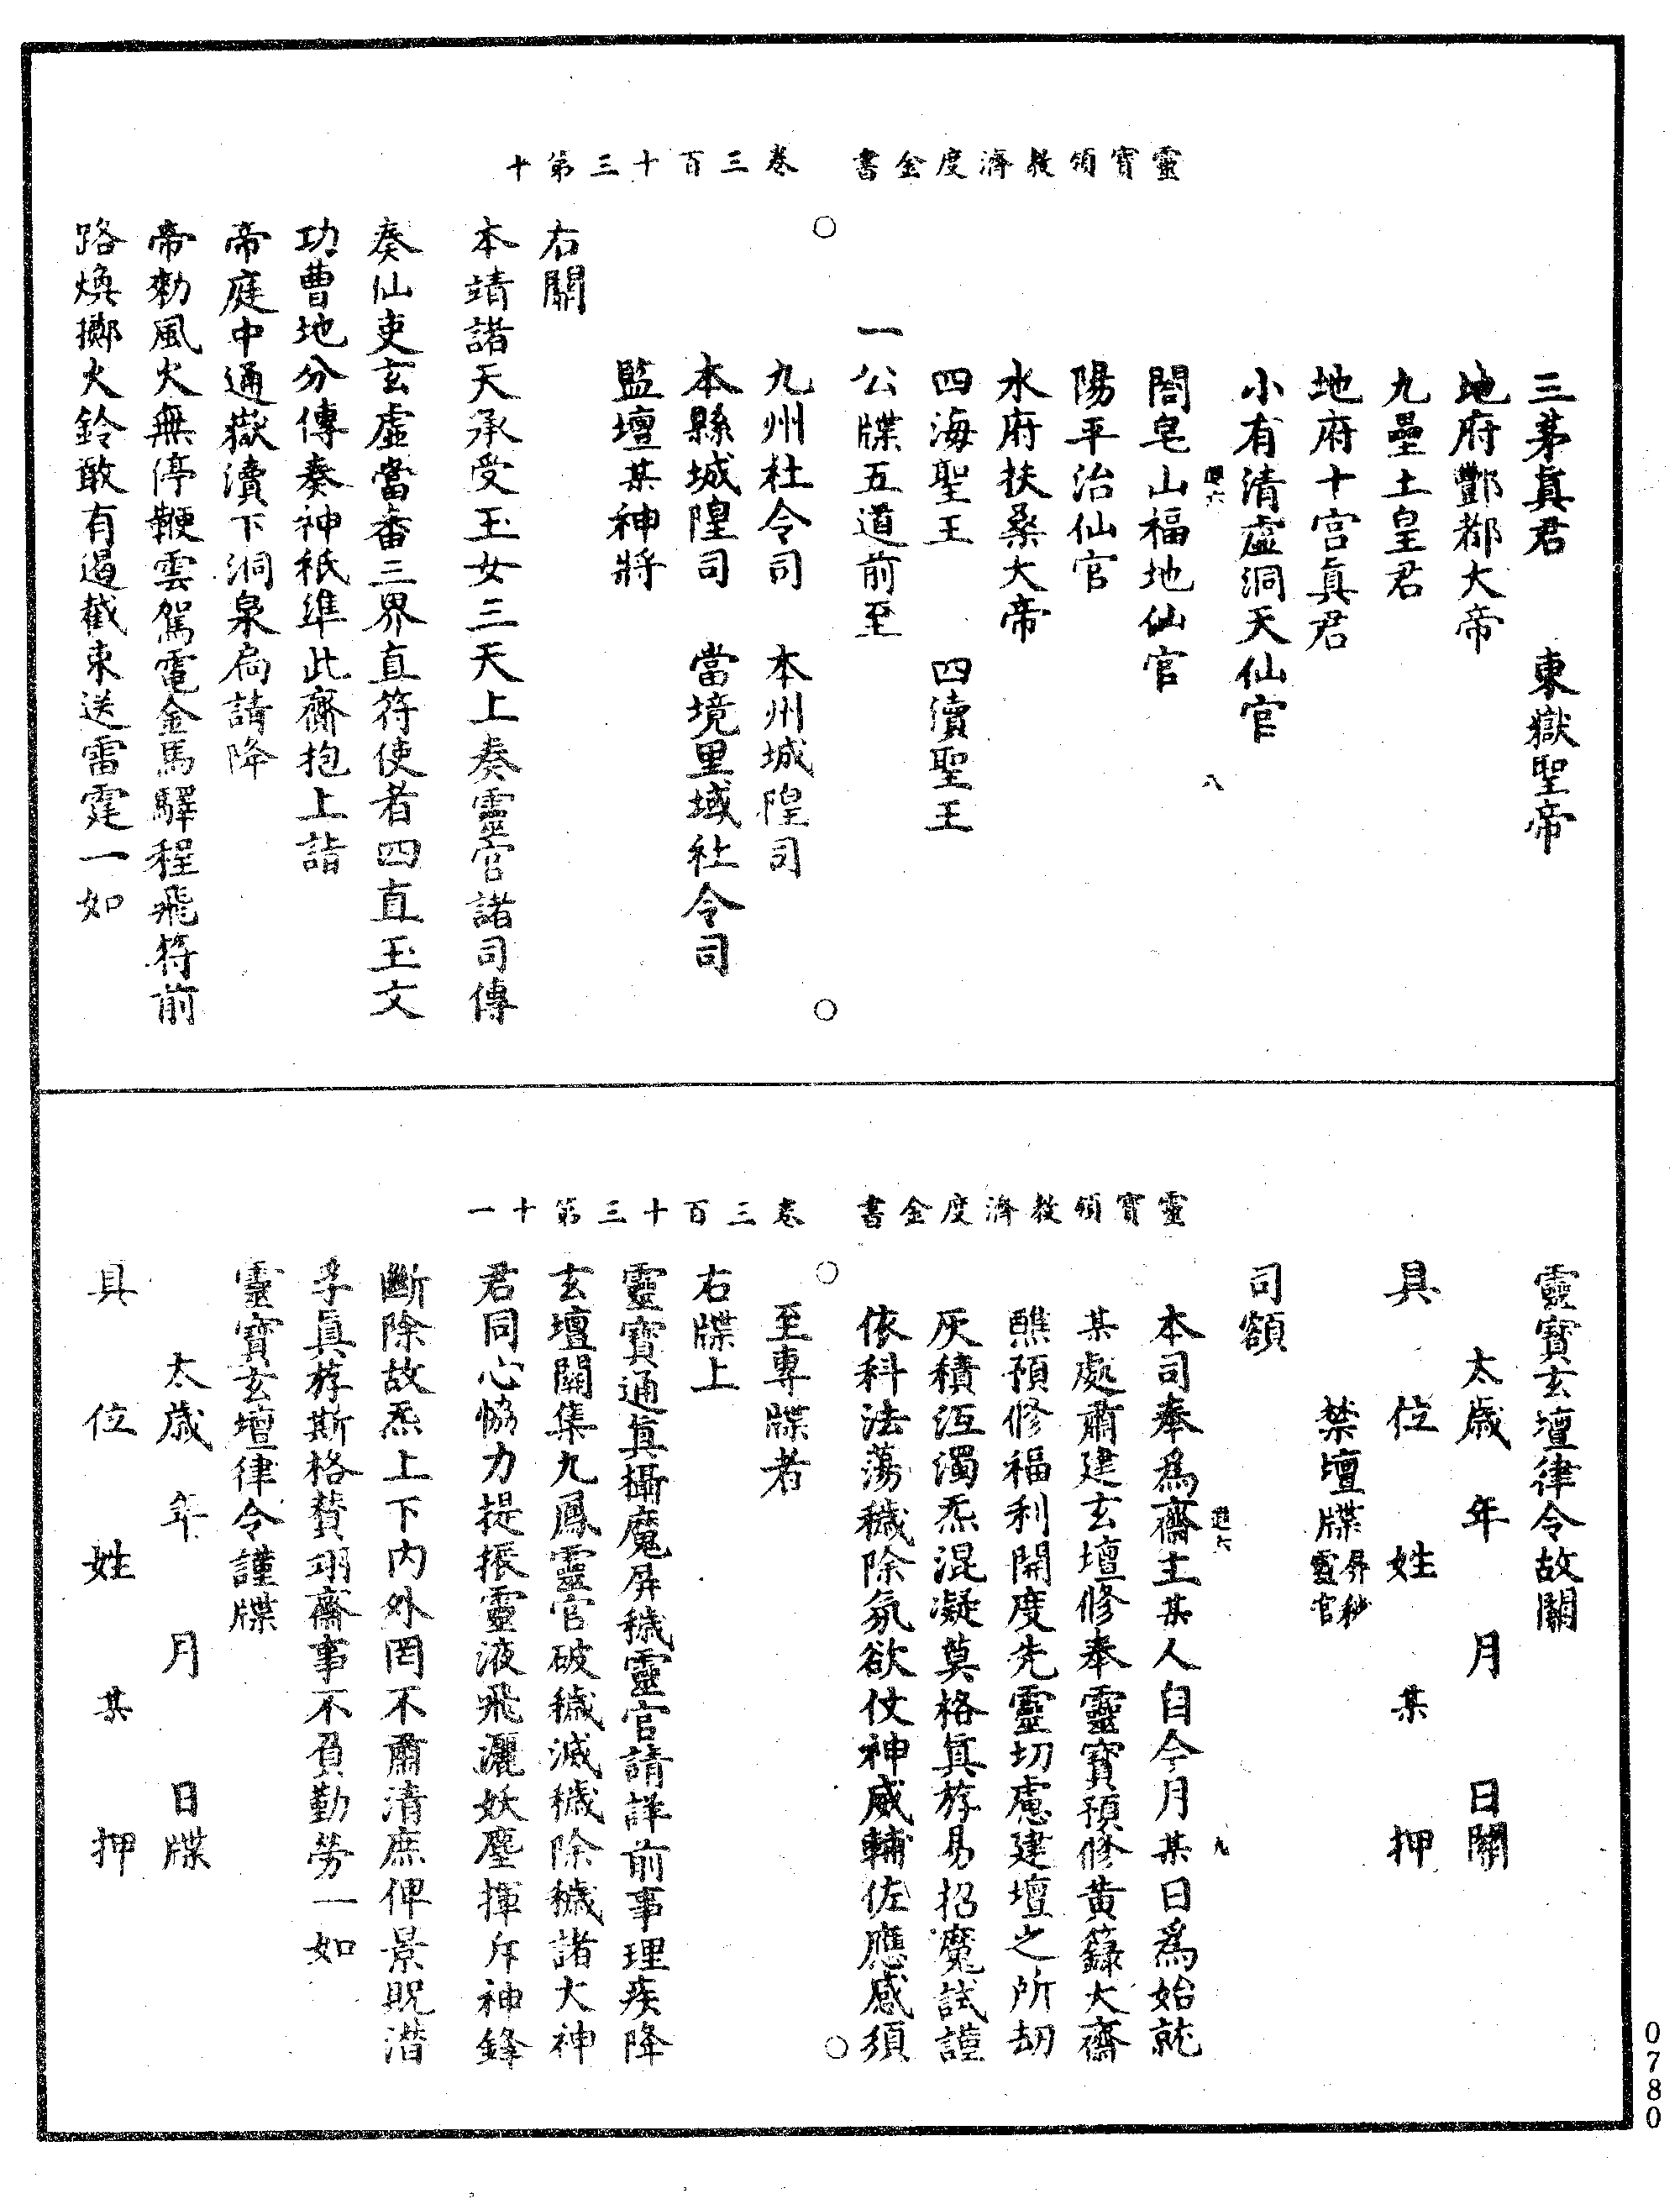 靈寶領教濟度金書　卷三百十三第十
三茅眞君　東嶽聖帝
地府酆都大帝
九壘土皇君
地府十宮眞君
小有清虛洞天仙官
八
閤皂山福地仙官
陽平治仙官
水府扶桑大帝
四海聖王　四瀆聖王
一公牒五道前至
九州社令司　本州城隍司
本縣城隍司　當境里域社令司
監壇某神將
右關
本靖諸天承受玉女三天上奏靈官諸司傳
奏仙吏玄虛當番三界直符使者四直玉文
功曹地分傳奏神祇準此齋抱上詣
帝庭中通嶽瀆下洞泉扃請降
帝勑風火無停鞭雲駕電金馬驛程飛符前
路煥擲火鈴敢有遏截束送雷霆一如
靈寶領教濟度金書　卷三百十三第十一
靈寶玄壇律令故關
太歲　年　月　日關
具　位　姓　某　押
禁壇牒屏穢靈官
司額
本司奉爲齋主某人自今月某日爲始就
九
某處肅建玄壇修奉靈寶預修黃籙大齋
醮預修福利開度先靈切慮建壇之所刼
灰積沍濁炁混凝莫格眞斿易招魔試謹
依科法蕩穢除氛欲仗神威輔佐應感須
至專牒者
右牒上
靈寶通眞攝魔屏穢靈官請詳前事理疾降
玄壇關集九鳳靈官破穢滅穢除穢諸大神
君同心恊力提振靈液飛灑妖塵揮斥神鋒
斷除故炁上下內外罔不肅清庶俾景貺潛
孚眞斿斯格贊翊齋事不負勤勞一如
靈寶玄壇律令謹牒
太歲　年　月　日牒
具　位　姓　某　押
0780